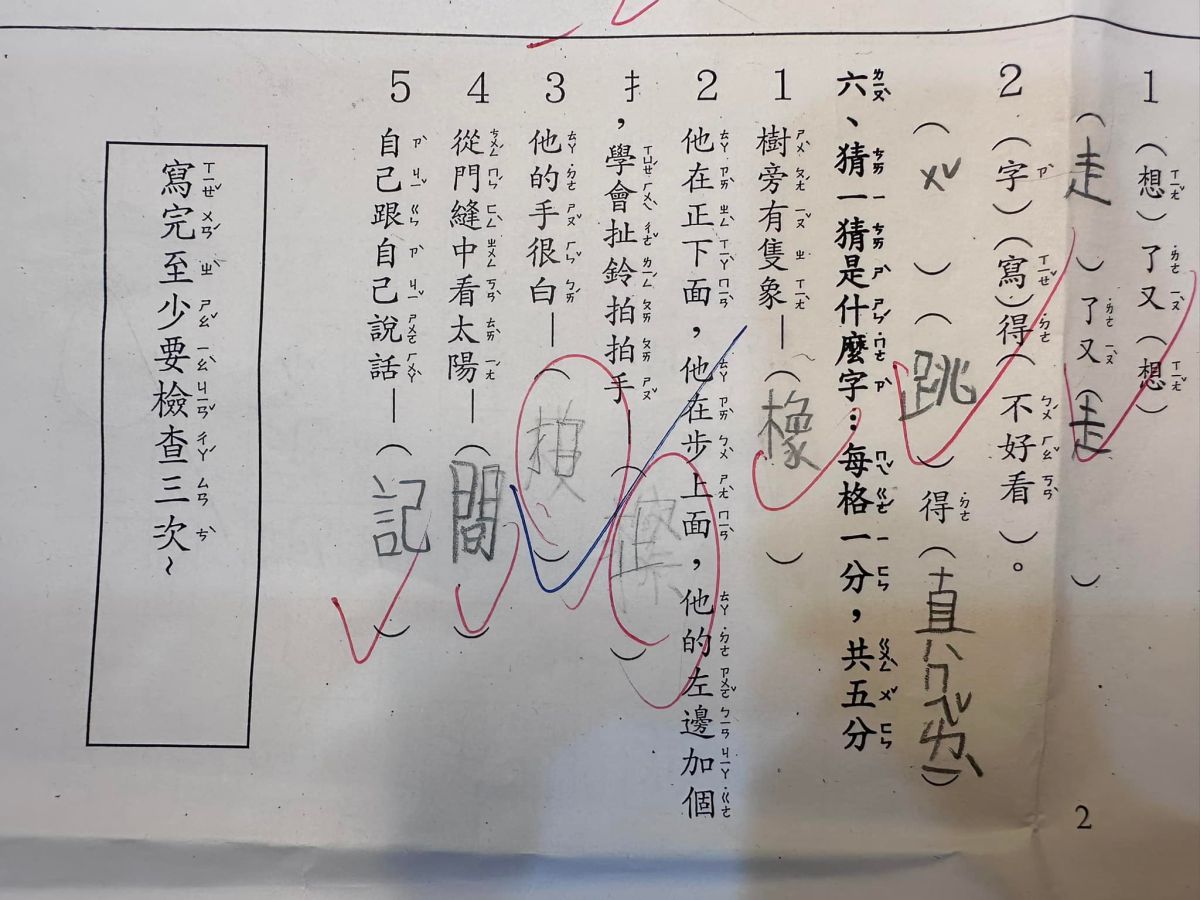 1（想）了又（想）
（走）了又（走）
2（字）（寫）得（不好看）。
（ㄨˇ）（跳）得（真ㄇㄟˇㄌㄧˋ）
六、猜一猜是什麼字：每格一分，共五分
1樹旁有隻象—（橡）
2他在正下面，他在步上面，他的左邊加個
扌，學會扯鈴拍拍手—（ ）
3他的手很白—（拍）
4從門縫中看太陽—（間）
5自己跟自己說話—（記）
寫完至少要檢查三次～
2